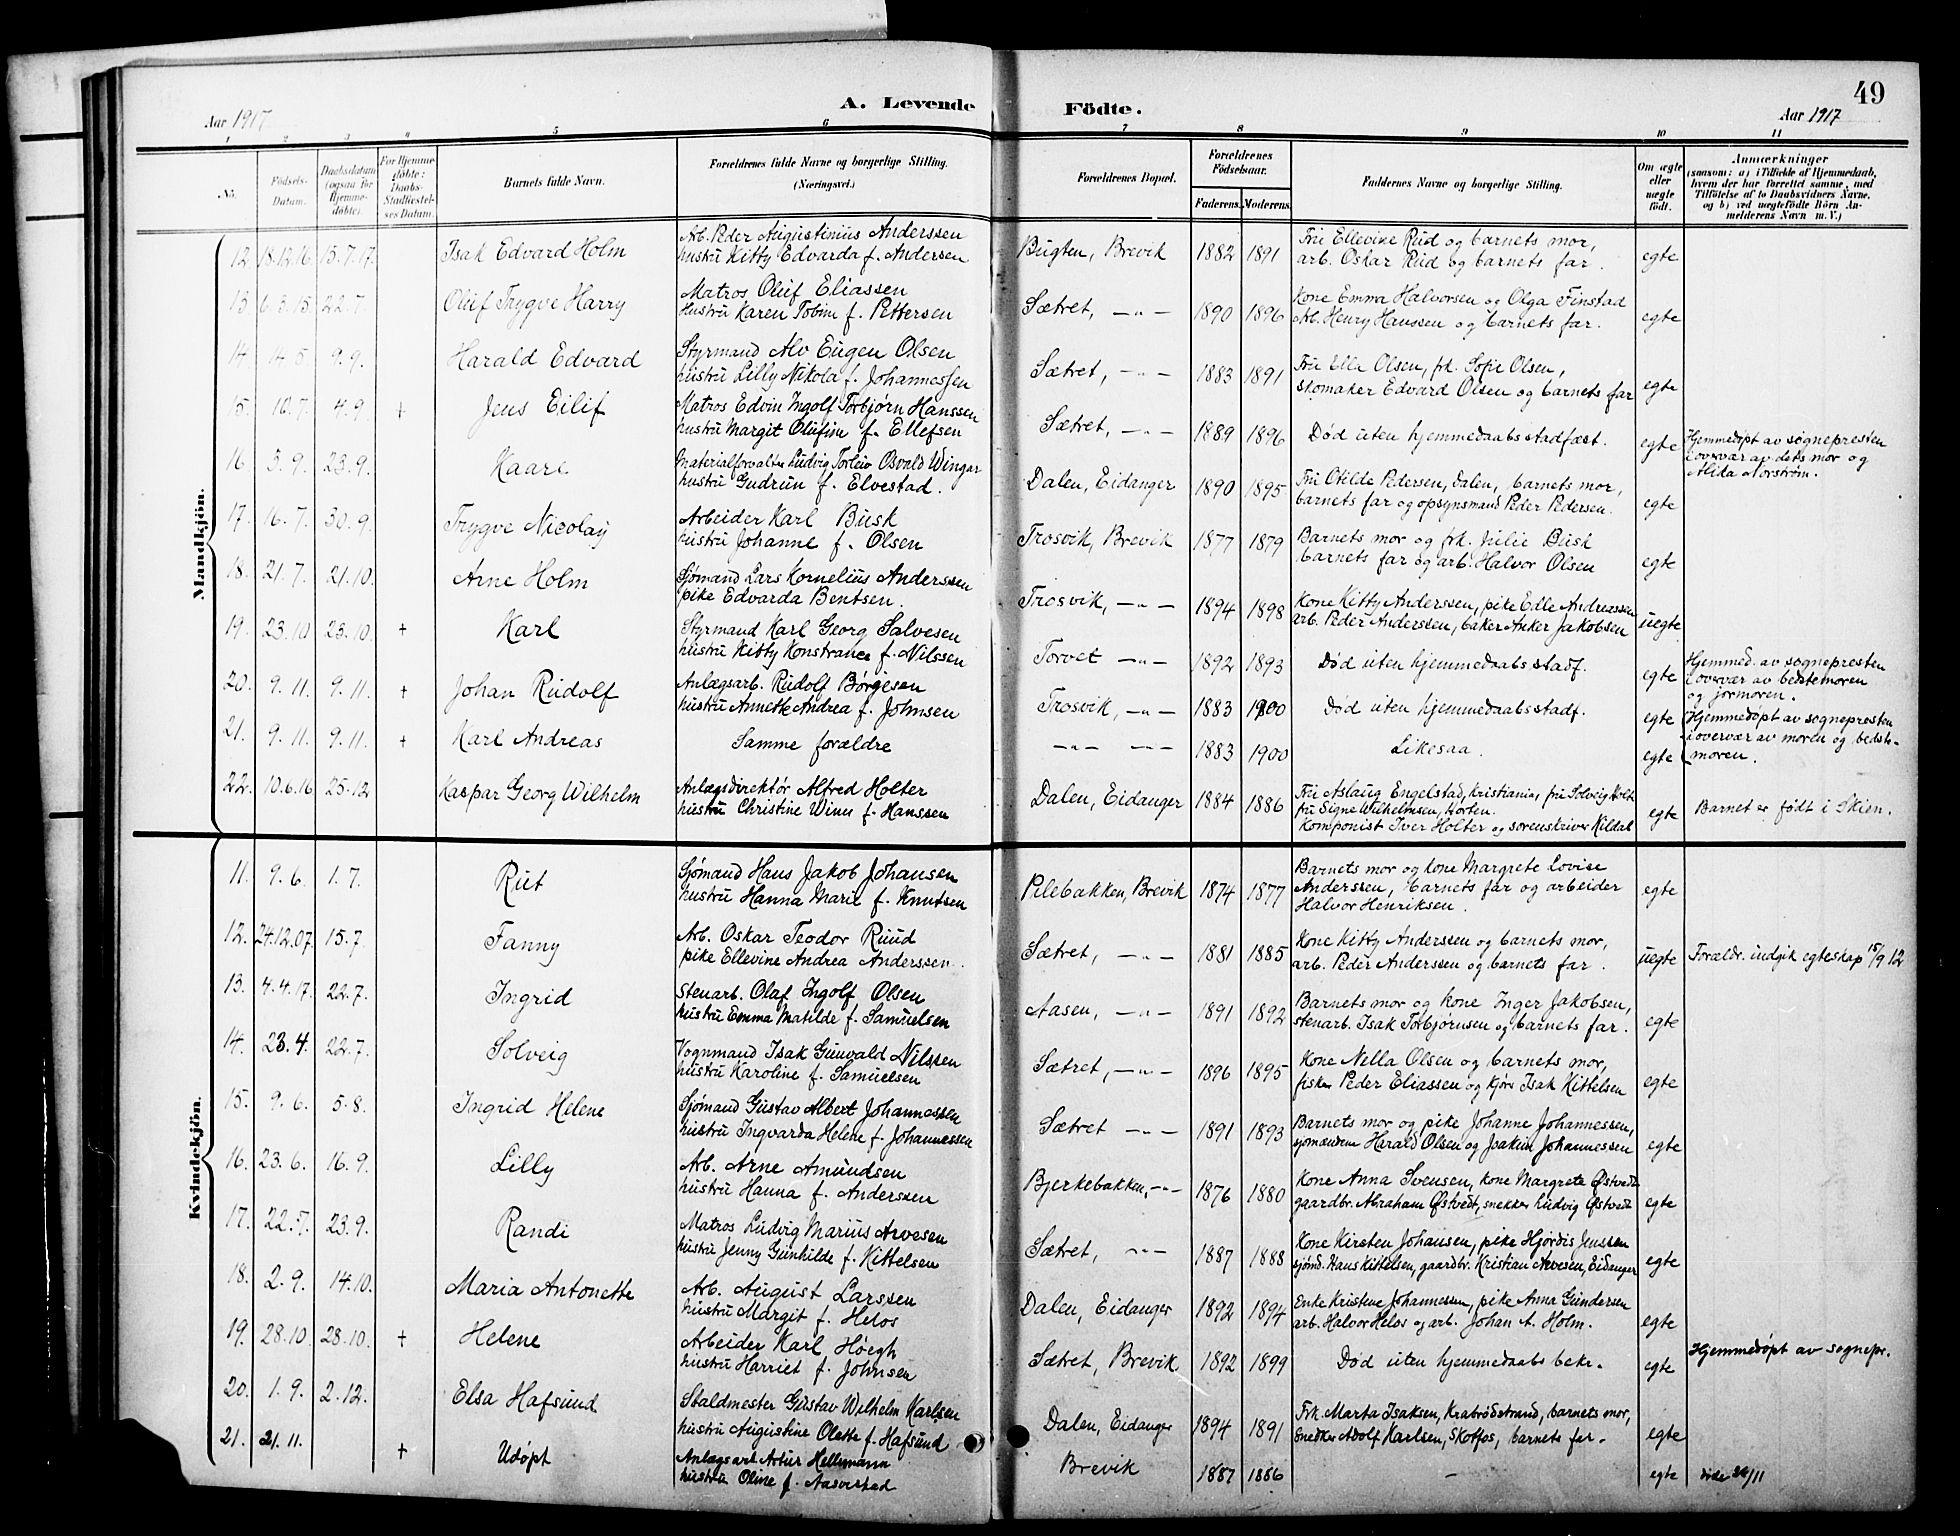 49
A. Levende Födte.
Aar 1917
Aar 1917
1 2 3 4 5 6 7 8 9 10 11
No.
Födsels-Datum.
Daabsdatum (ogsaa for Hjemme-döbte).
For Hjemme-döbte: Daabs-Stadfæstel-ses Datum.
Barnets fulde Navn.
Forældrenes fulde Navne og borgerlige Stilling. (Næringsvei.)
Forældrenes Bopæl.
Forældrenes Födselsaar.
Faderens. Moderens.
Faddernes Navne og borgerlige Stilling.
Om ægte eller uægte født.
Anmærkninger
(saasom: a) i Tilfælde af Hjemmedaab, hvem der har forrettet samme, med Tilföielse af to Daabsvidners Navne, og b) ved uægtefödte Börn Anmelderens Navn m. V.)
Mandkjön.
12 18.12.16 15.7.17. Isak Edvard Holm
Arb. Peder Augustinius Anderssen
hustru Kitty Edvarda f. Andersen
Bugten, Brevik 1882 1891
Fru Ellevine Rud og barnets mor,
arb. Oskar Rud og barnets far.
egte
13 6.3.15. 22.7. Oluf Trygve Harry
Matros Oluf Eliassen
hustru Karen Tobine f. Pettersen
Sætret, -"- 1890 1896
Kone Emma Halvorsen og Olga Finstad
Arb. Henry Hanssen og barnets far.
egte
14 14.5 9.9. Harald Edvard
Styrmand Alv Eugen Olsen
hustru Lilly Nikola f. Johannessen
Sætret, -"- 1883 1891
Fru Elle Olsen, frk. Sofie Olsen,
skomaker Edvard Olsen og barnets far
egte
15. 10.7. 4.9. + Jens Eilif
Matros Edvin Ingolf Torbjørn Hanssen
hustru Margit Olufine f. Ellefsen
Sætret, -"- 1889 1896
Død uten hjemmedaabsstadfæst.
egte
Hjemmedøpt av sognepresten
i overvær av dets mor og
Alida Norstrøm.
16 3.9. 23.9. Kaare
Materialforvalter Ludvig Torleiv Osvald Wingar
hustru Gudrun f. Elvestad.
Dalen, Eidanger 1890 1895
Fru Otilde Pedersen, Dalen, barnets mor,
barnets far og opsynsmand Peder Pedersen.
egte
17. 16.7. 30.9. Trygve Nicolay
Arbeider Karl Busk
hustru Johanne f. Olsen
Trosvik, Brevik 1877 1879
Barnets mor og frk. Julie Busk
barnets far og arb. Halvor Olsen
egte
18. 21.7. 21.10. Arne Holm
Sjømand Lars Kornelius Anderssen
pike Edvarda Bentsen.
Trosvik, -"- 1894 1898
Kone Kitty Anderssen, pike Edle Andreassen
arb. Peder Anderssen, baker Anker Jakobsen
uegte
19. 23.10 23.10. + Karl
Styrmand Karl Georg Salvesen
hustru Kitty Konstrance f. Nilssen
Torvet -"- 1892 1893
Død uten hjemmedaabsstadf.
egte
Hjemmed. av sognepresten
i overvær av bedstemoren
og jormoren.
20. 9.11. 9.11. + Johan Rudolf
Anlægsarb. Rudolf Børgesen
hustru Annette Andrea f. Johnsen
Trosvik, -"- 1883 1900
Død uten hjemmedaabsstadf.
egte
Hjemmedøpt av sognepresten
i overvær av moren og bedste-
moren.
21. 9.11. 9.11. + Karl Andreas
Samme forældre
-"- -"- 1883 1900
Likesaa.
egte
22. 10.6.16 25.12 Kaspar Georg Wilhelm
Anlægsdirektør Alfred Holter
hustru Christine Winn f. Hanssen
Dalen, Eidanger 1884 1886
Fru Aslaug Engelstad, Kristiania, fru Solveig Holt
fru Signe Wilhelmsen, Horten.
Komponist Iver Holter og sorenskriver Kildal
egte
Barnet er født i Skien.
Kvindekjön.
11. 9.6. 1.7. Rut
Sjømand Hans Jakob Johansen
hustru Hanna Marie f. Knutsen
Pilebakken, Brevik 1874 1877
Barnets mor og kone Margrete Lovise
Anderssen, barnets far og arbeider
Halvor Henriksen.
egte
12. 24.12.07. 15.7. Fanny
Arb. Oskar Teodor Ruud
pike Ellevine Andrea Anderssen.
Sætret, -"- 1881 1885
Kone Kitty Anderssen og barnets mor,
arb. Peder Anderssen og barnets far.
uegte
Forældr. indgik egteskap 15/9 12
13. 4.4.17. 22.7. Ingrid
Stenarb. Olaf Ingolf Olsen
hustru Emma Matilde f. Samuelsen
Aasen, -"- 1891 1892
Barnets mor og kone Inger Jakobsen,
stenarb. Isak Torbjørnsen og barnets far.
egte
14. 23.4. 22.7. Solveig
Vognmand Isak Gunvald Nilssen
hustru Karoline f. Samuelsen
Sætret, -"- 1896 1895
Kone Nella Olsen og barnets mor,
fisker Peder Eliassen og kjørs Isak Kittelsen
egte
15. 9.6. 5.8. Ingrid Helene
Sjømand Gustav Albert Johannessen
hustru Ingvarda Helene f. Johannessen
Sætret -"- 1891 1893
Barnets mor og pike Johanne Johannessen,
sjømændene Harald Olsen og Joakim Johannessen
egte
16. 23.6. 16.9. Lilly
Arb. Arne Amundsen
hustru Hanna f. Anderssen
Bjerkebakken, -"- 1876 1880
Kone Anna Svensen, kone Margrete Østvedt
gaardbr. Abraham Østvedt, snekker Ludvig Østvedt
egte
17. 22.7. 23.9. Randi
Matros Ludvig Marius Arvesen
hustru Jenny Gunhilde f. Kittelsen
Sætret, -"- 1887 1888
Kone Kirsten Johansen, pike Hjørdis Jenssen
sjømd. Hans Kittelsen, gaardbr. Kristian Arvesen, Eidanger
egte
18. 2.9. 14.10. Maria Antonette
Arb. August Larssen
hustru Margit f. Helos
Dalen, Eidanger 1892 1894
Enke Kristine Johannessen, pike Anna Gundersen
arb. Halvor Helos og arb. Johan A. Holm.
egte
19. 28.10 28.10. + Helene
Arbeider Karl Høegh
hustru Harriet f. Johnsen
Sætret, Brevik 1892 1899
Død uten hjemmedaabs bekr.
egte
Hjemmedøpt av sognepr.
20. 1.9. 2.12. Elsa Hafsund
Staldmester Gustav Wilhelm Karlsen
hustru Augustine Olette f. Hafsund
Dalen, Eidanger 1894 1891
Frk. Marta Isaksen, Krabrødstrand, barnets mor,
Snedker Adolf Karlsen, Skotfos, barnets far.
egte
21. 21.11. + Udøpt
Anlægsarb Artur Hellsmann
hustru Oline f. Aasvestad
Brevik 1887 1886
-
egte